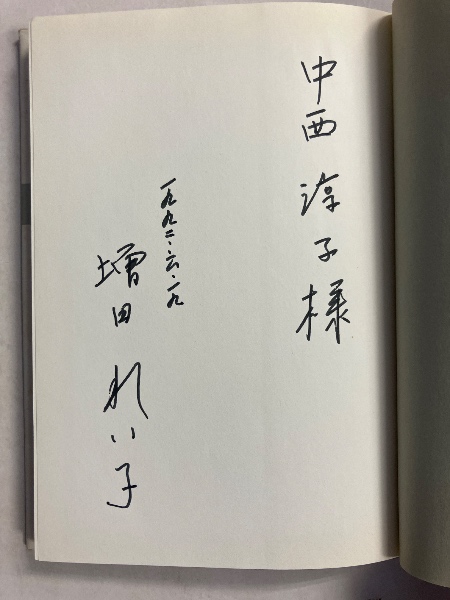 中西 淳子様
一九九二・六・一九
増田 れい子